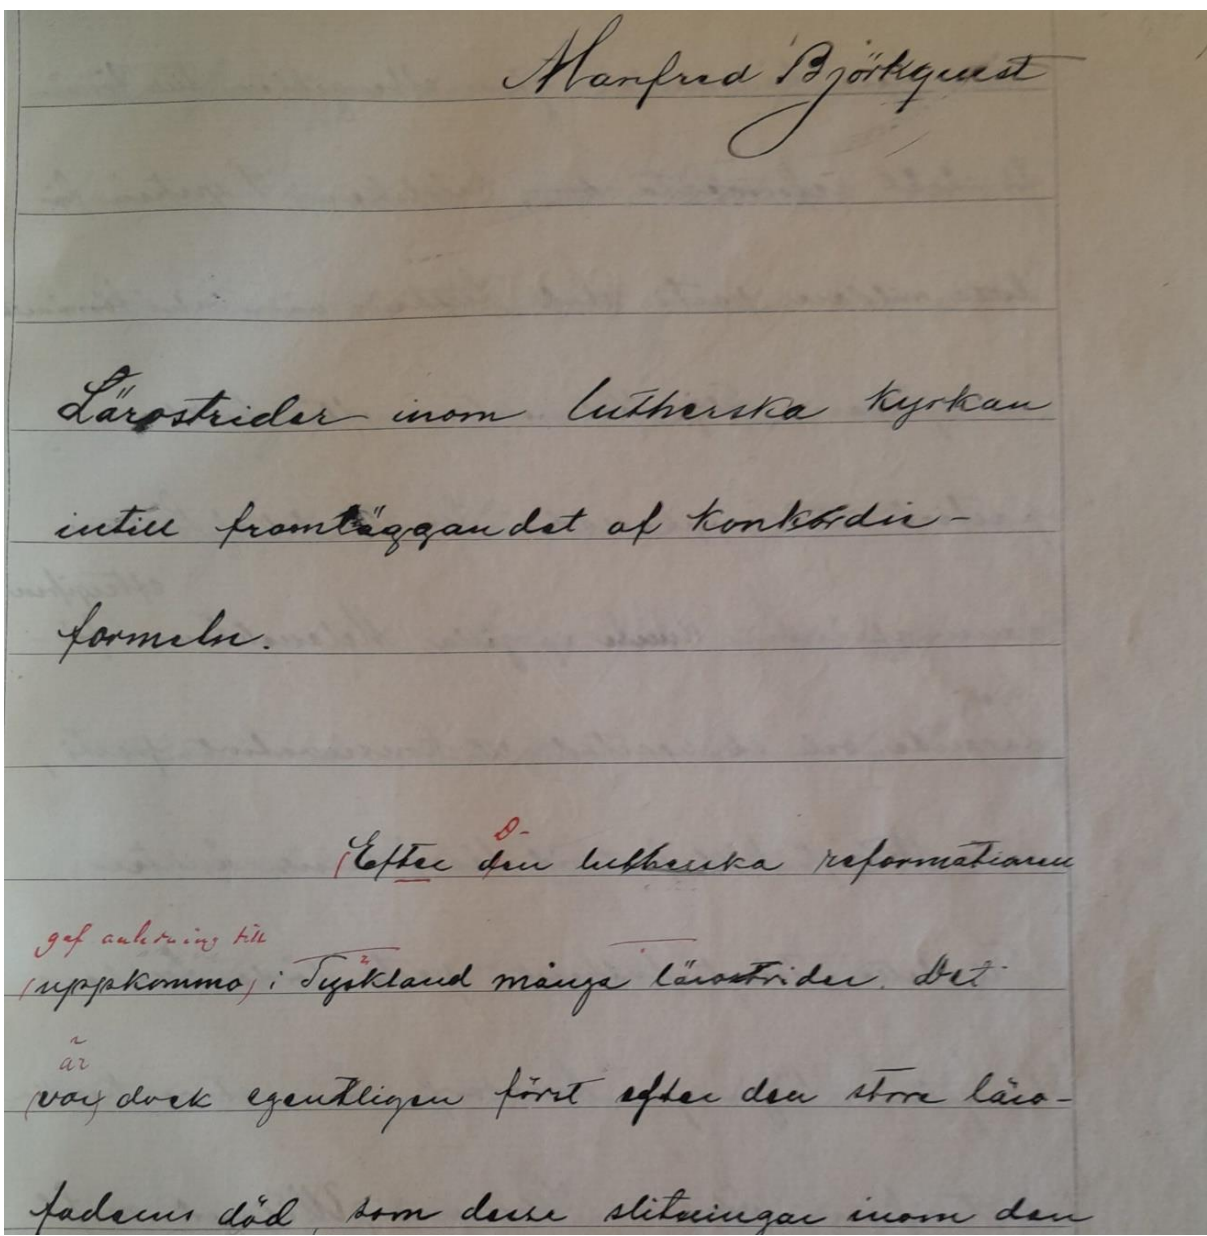 Manfred Björkquist
Lärostrider inom lutherska kyrkan
intill framläggandet af konkordie-
formeln.
D-
(Efter den lutherska reformationen
gaf anledning till
(uppkommo) i Tyskland många lärostrider. Det
är
(var) dock egentligen först efter den store läro-
faderns död, som desse slitningar inom den